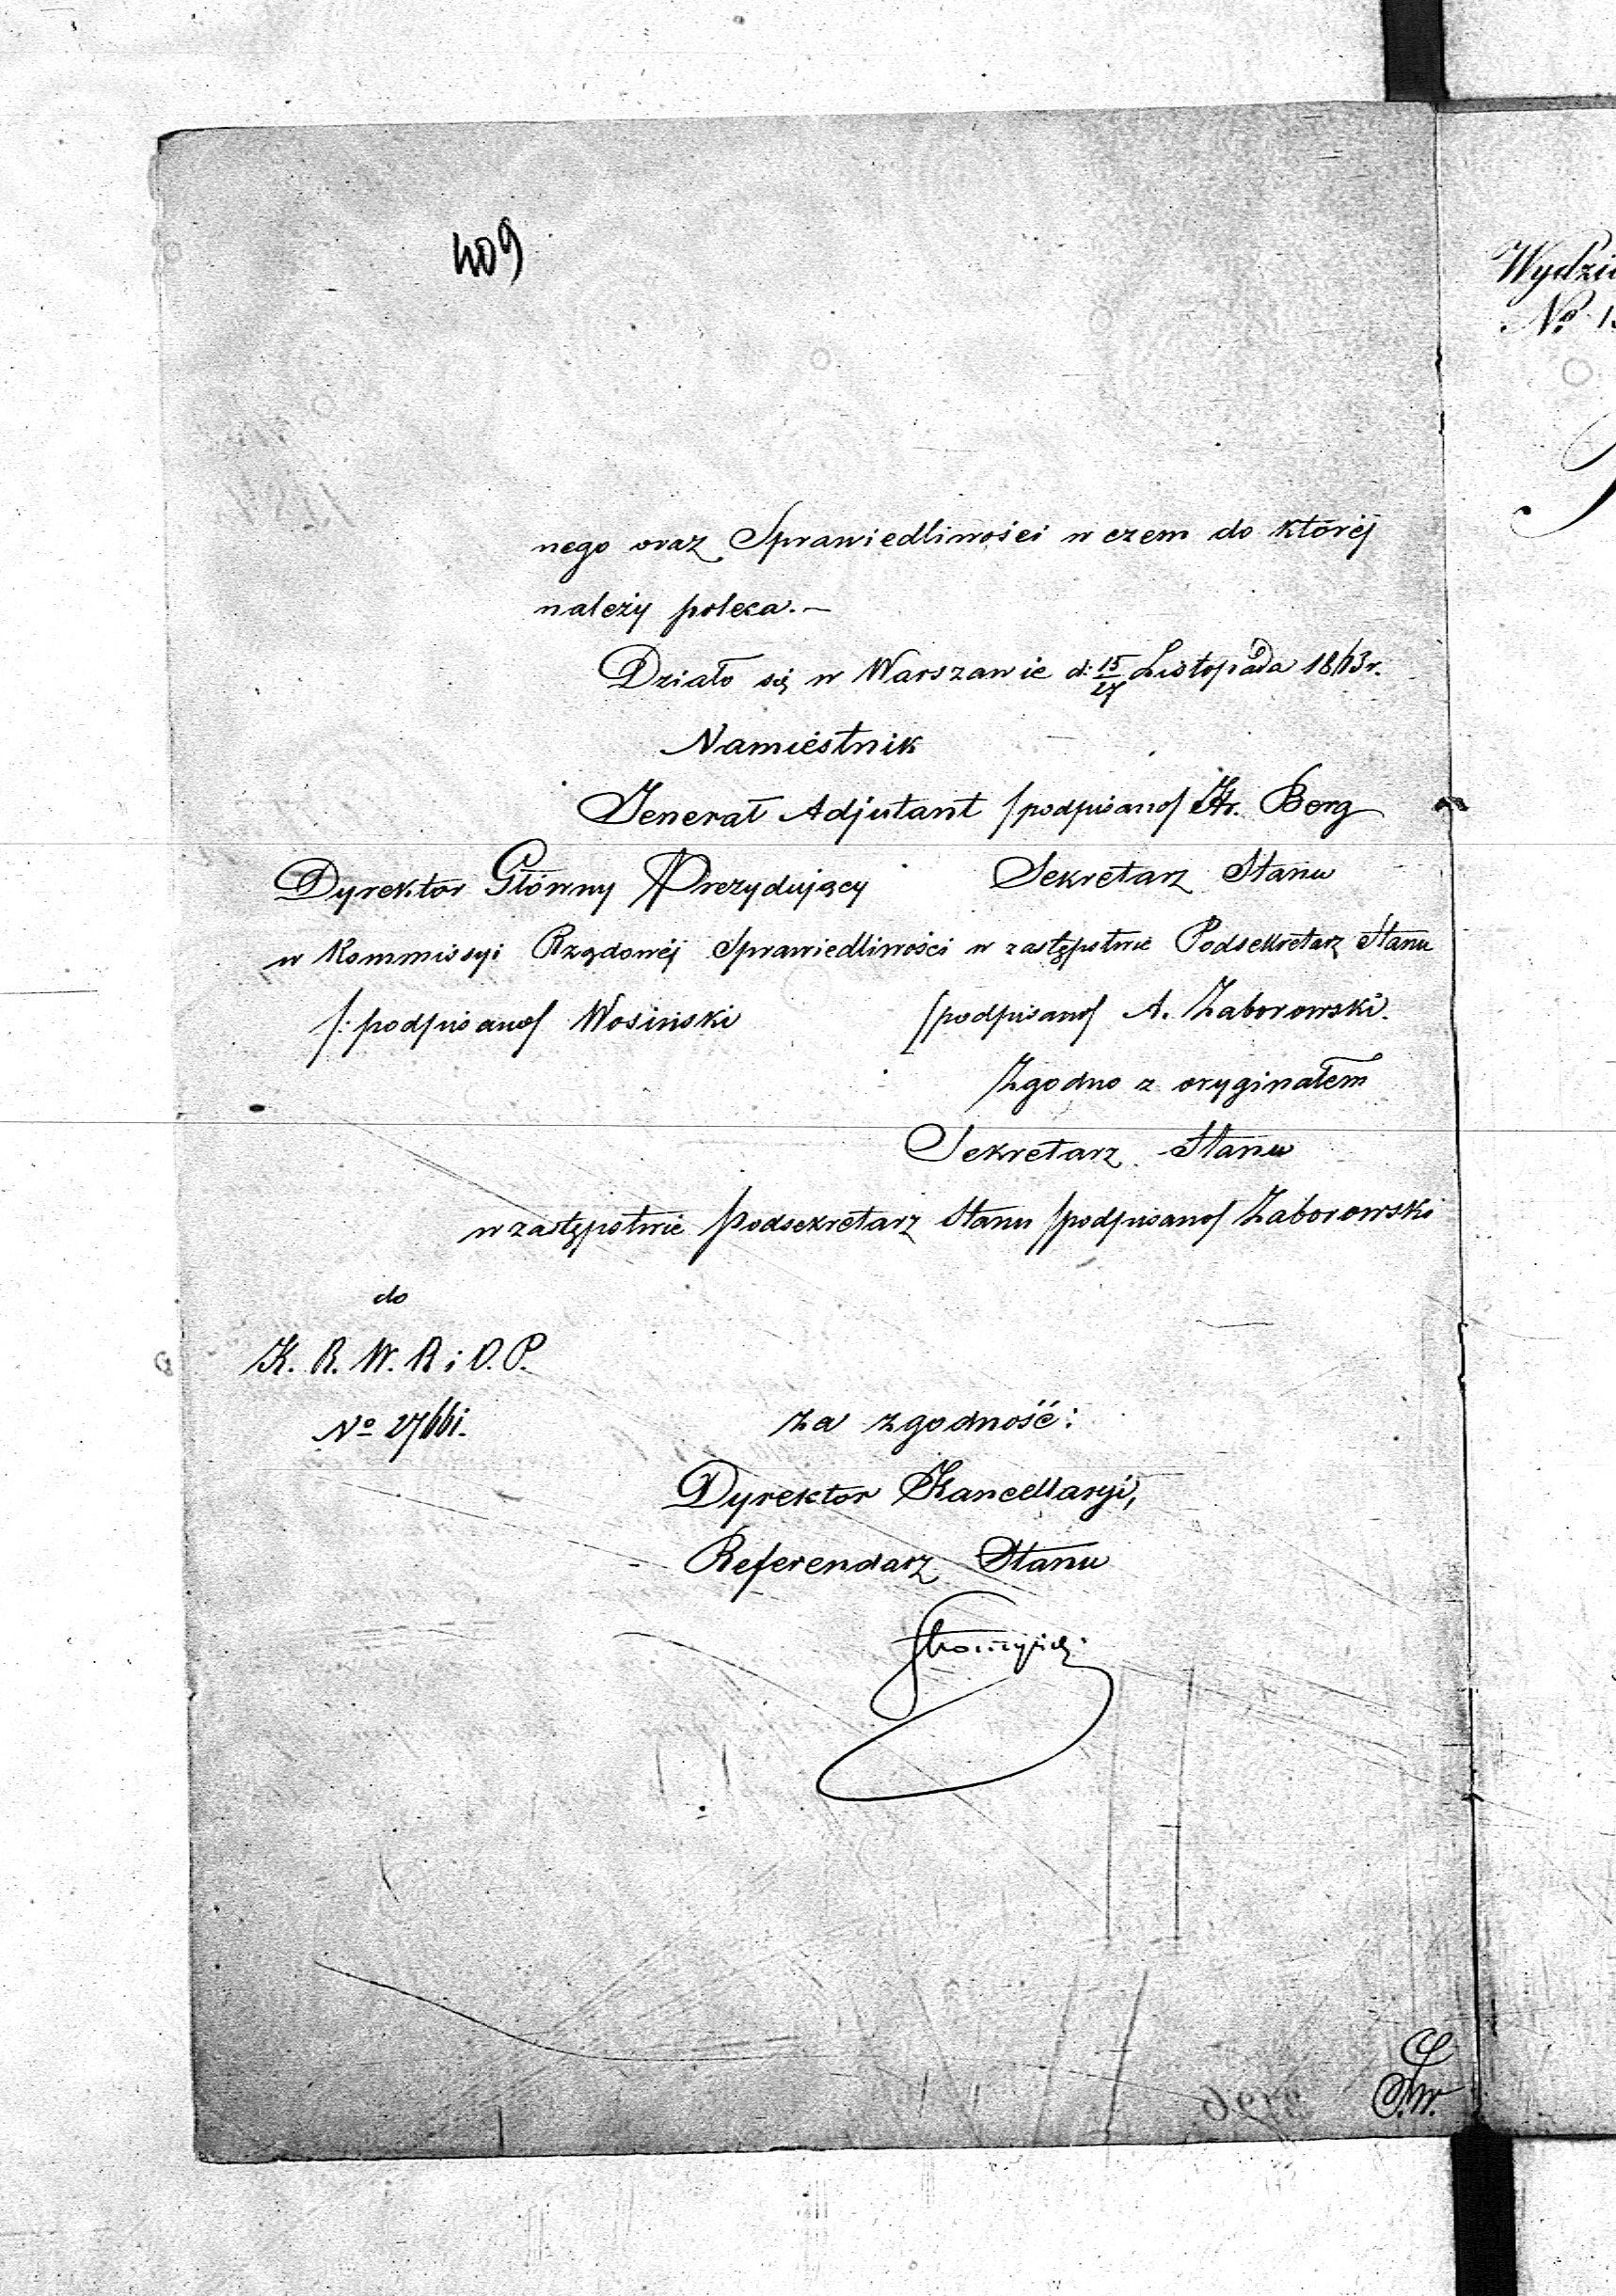 409
nego oraz Sprawiedliwości w czem do któréj
należy poleca. —
Działo się w Warszawie d: 15/27 Listopada 1863 r.
Namiestnik
Jenerał Adjutant /podpisano/ Hr. Berg
Dyrektor Główny Prezydujący Sekretarz Stanu
w Kommissyi Rządowéj Sprawiedliwości w zastępstwie Podsekretarz Stanu
/: podpisano/ Wosiński /podpisano/ A. Zaborowski.
Zgodno z oryginałem
Sekretarz Stanu
w zastępstwie Podsekretarz Stanu /podpisano/ Zaborowski
do
K. R. W. R i O. P.
No 27661.
Za zgodność:
Dyrektor Kancellaryi,
Referendarz Stanu
Wydzi
No